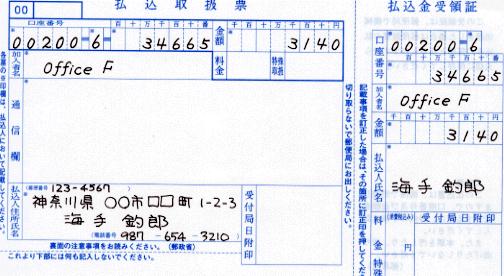 00
払込取扱票
口座番号
百十万千百十番
00200=6= 34665
金額
千百十万千百十円
3140
料金
特殊取扱
加入者名
Office F
通信欄
払込人住所氏名
(郵便番号 123-4567)
神奈川県 〇〇市□□町 1-2-3
海手 釣郎
(電話番号 987-654-3210)
受付局日附印
裏面の注意事項をお読みください。(郵政省)
これより下部には何も記入しないでください。
各票の※印欄は、払込人において記載してください。
切り取らないで郵便局にお出しください。
記載事項を訂正した場合は、その箇所に訂正印を押してくだ
払込金受領証
口座番号
00200=6
34665
加入者名
Office F
金額
千百十万千百十円
3140
払込人氏名
海手 釣郎
料金
(消費税込み)
円
受付局日附印
特殊